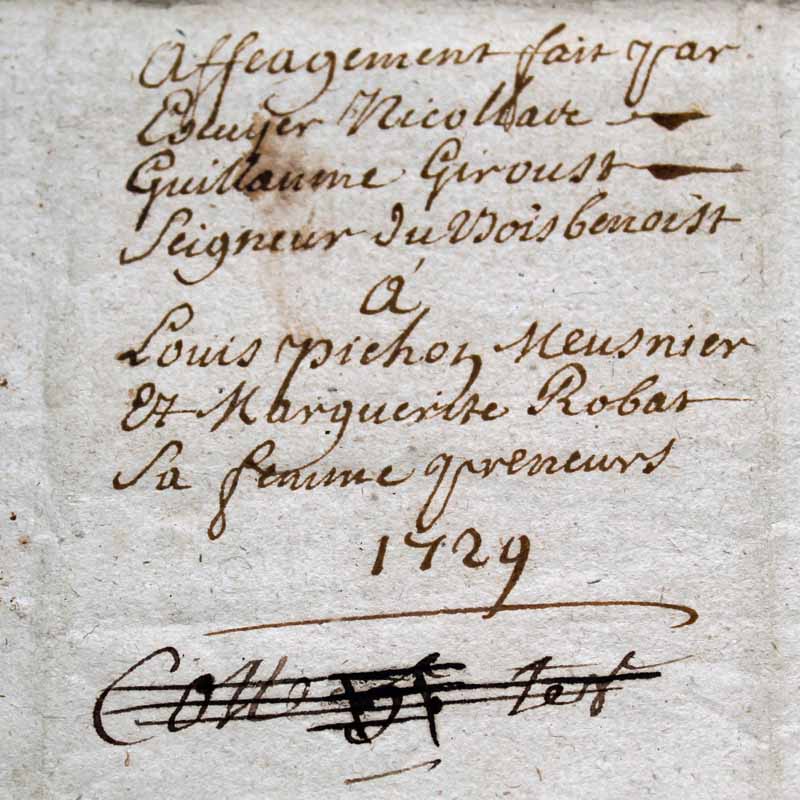 Affeagement fait par
Ecuyer Nicollade
Guillaume Giroust
Seigneur du Boisbenoist
A
Louis pichon Meusnier
Et Marguerite Robat
Sa femme preneurs
1729
Cotte